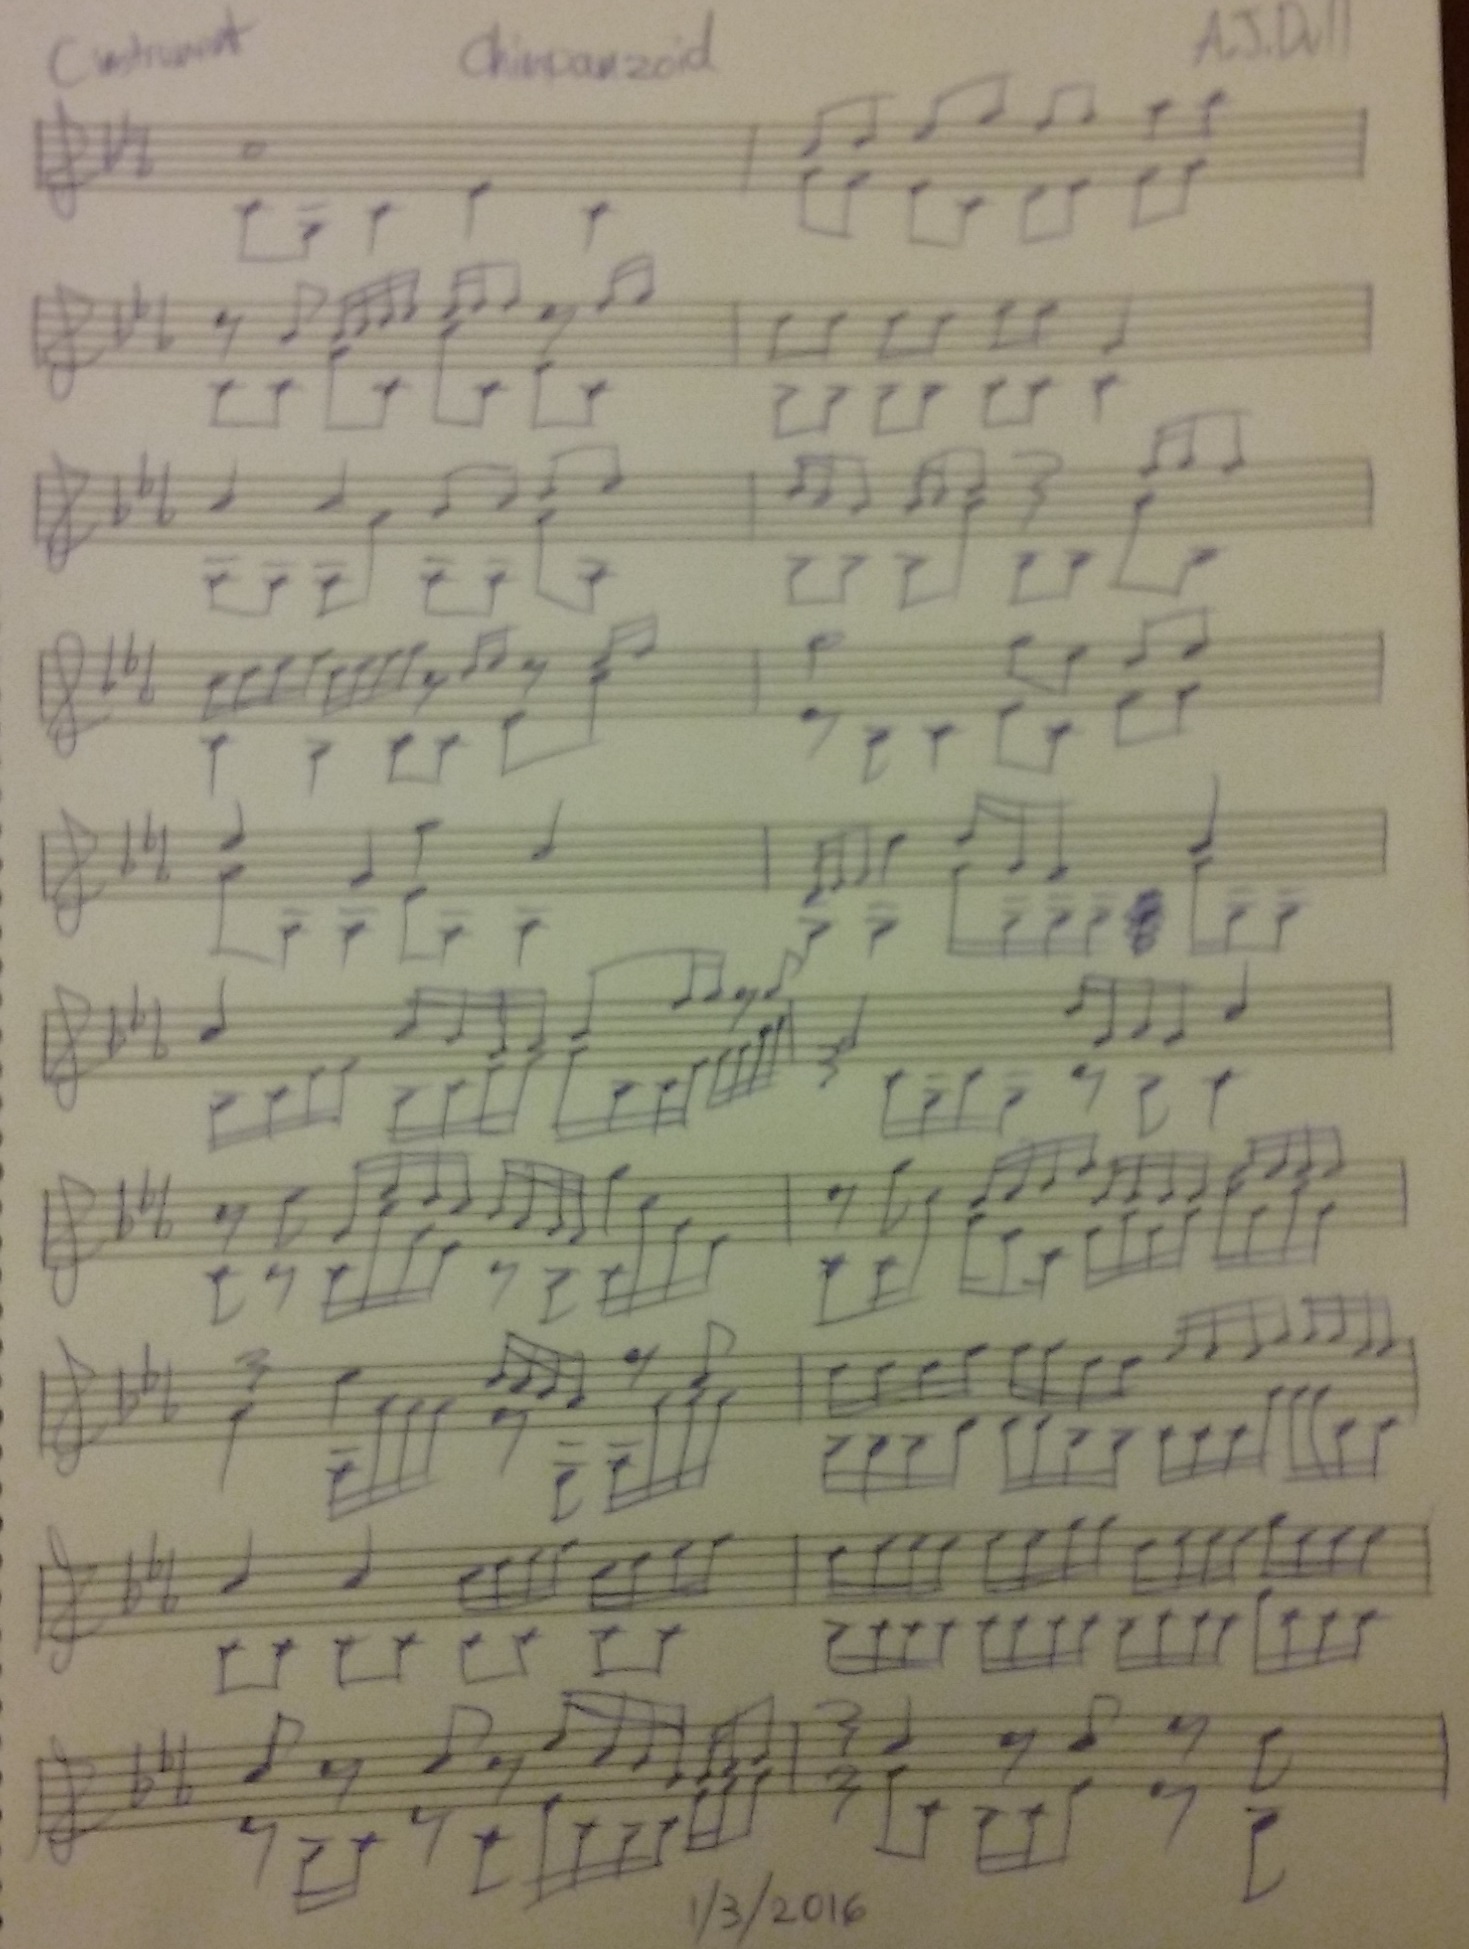 C instrument Chimpanzoid A.J.Dull
1/3/2016